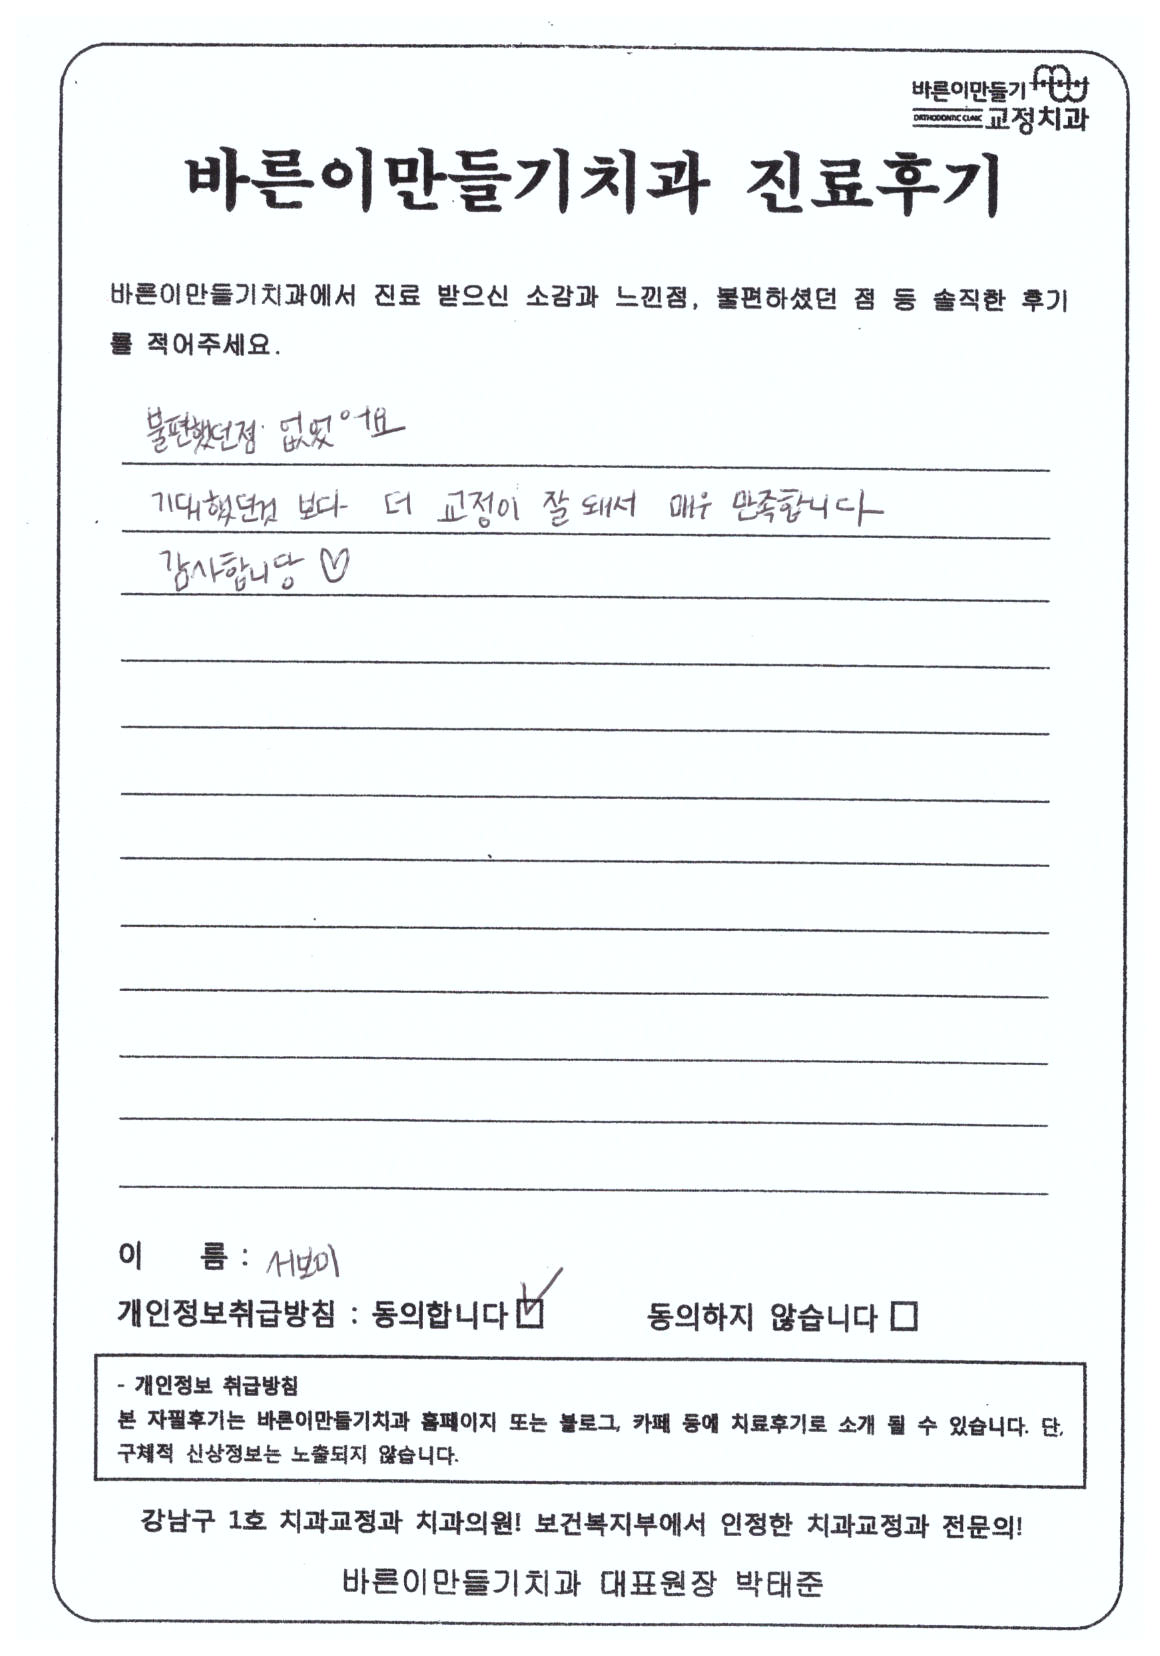 바른이만들기
ORTHODONTIC CLINIC 교정치과
바른이만들기치과 진료후기
바른이만들기치과에서 진료 받으신 소감과 느낀점, 불편하셨던 점 등 솔직한 후기
를 적어주세요.
불편했던점 없었어요
기대했던것 보다 더 교정이 잘 돼서 매우 만족합니다
감사합니당 ♡
이 름 : 서보미
개인정보취급방침 : 동의합니다 ☑ 동의하지 않습니다 □
- 개인정보 취급방침
본 자필후기는 바른이만들기치과 홈페이지 또는 블로그, 카페 등에 치료후기로 소개 될 수 있습니다. 단,
구체적 신상정보는 노출되지 않습니다.
강남구 1호 치과교정과 치과의원! 보건복지부에서 인정한 치과교정과 전문의!
바른이만들기치과 대표원장 박태준